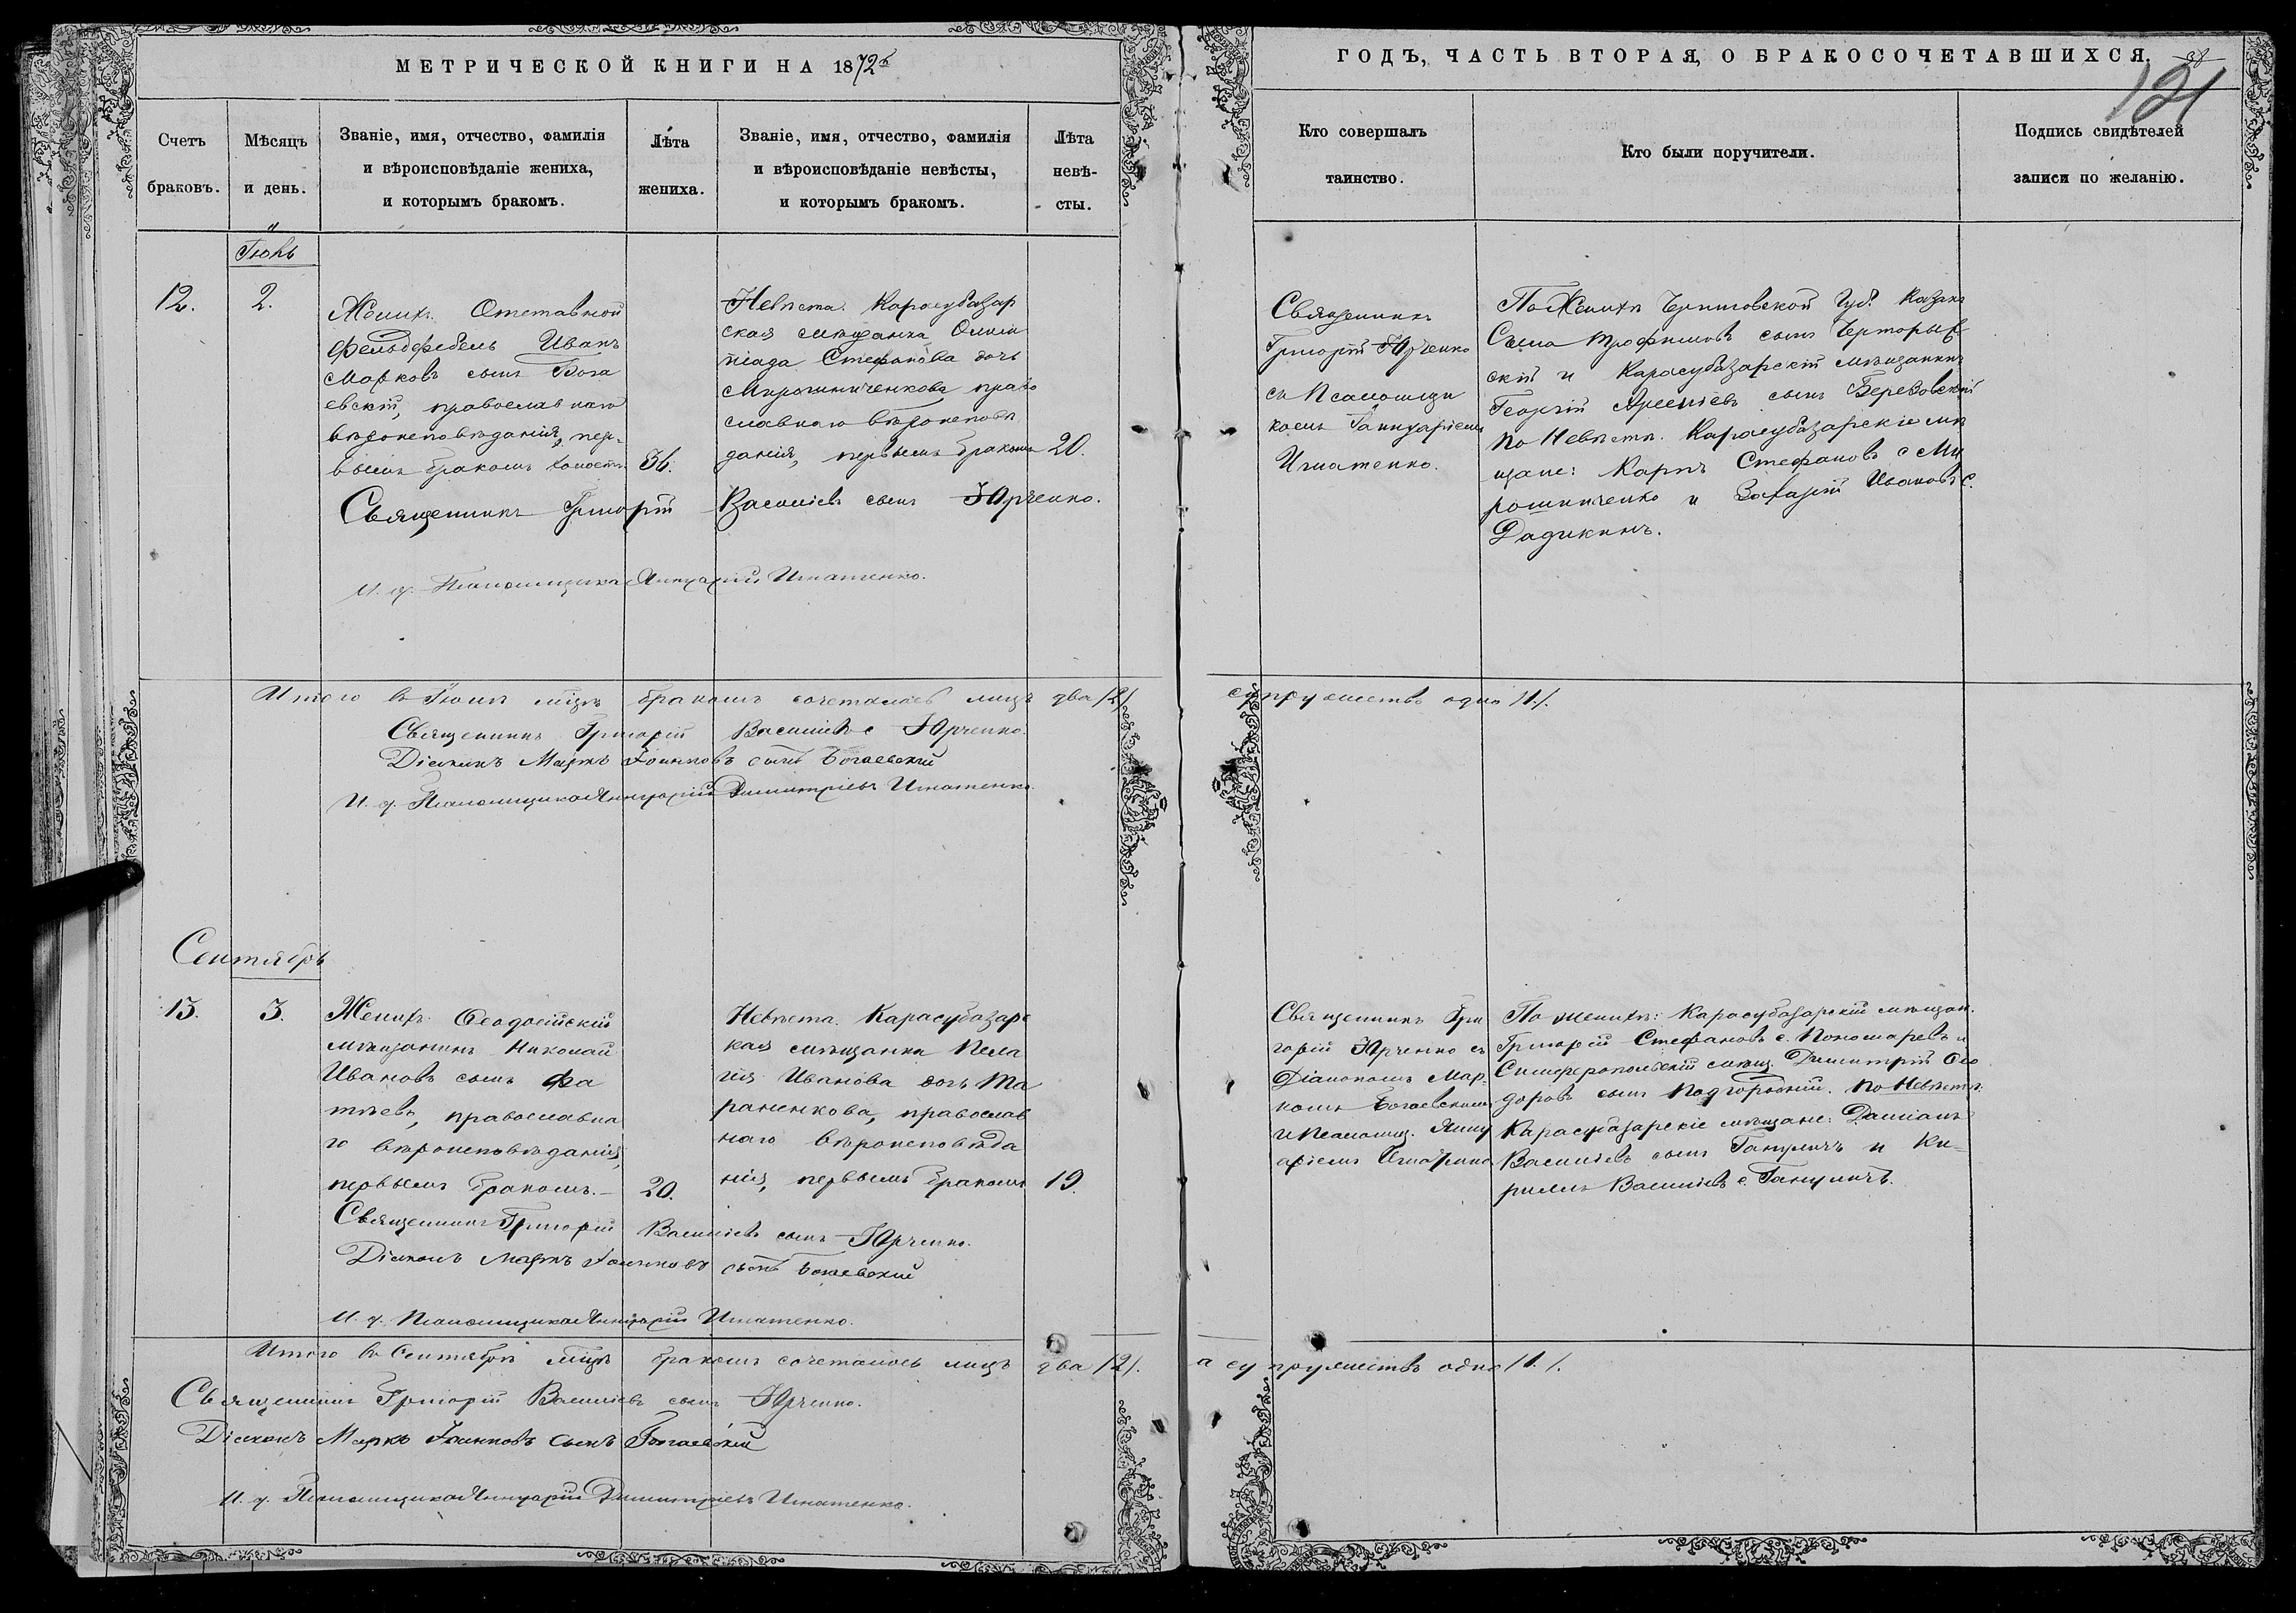 МЕТРИЧЕСКОЙ КНИГИ НА 1872й
ГОДЪ, ЧАСТЬ ВТОРАЯ, О БРАКОСОЧЕТАВШИХСЯ.
121
Счетъ браковъ.
Мѣсяцъ и день.
Званіе, имя, отчество, фамилія
и вѣроисповѣданіе жениха,
и которымъ бракомъ.
Лѣта
жениха.
Званіе, имя, отчество, фамилія
и вѣроисповѣданіе невѣсты,
и которымъ бракомъ.
Лѣта
невѣ-
сты.
Кто совершалъ
таинство.
Кто были поручители.
Подпись свидѣтелей
записи по желанію.
Іюнь
12.
2.
Женихъ. Отставной
Фельдфебель Иванъ
Марковъ сынъ Бога
евскій, православнаго
вѣроисповѣданія, пер-
вымъ бракомъ холостъ
36.
Невѣста. Карасубазар
ская мѣщанка Олим
піада Стефанова дочь
Мирошниченкова право
славнаго вѣроисповѣ
данія, первымъ бракомъ
20.
Священникъ
Григорій Юрченко
съ Псаломщи
комъ Іаннуаріемъ
Игнатенко.
По Женихѣ Черниговской Губ. Казакъ
Савва Трофимовъ сынъ Черторыж
скій и Карасубазарскій мѣщанинъ
Георгій Арсеніевъ сынъ Березовскій
по Невѣстѣ. Карасубазарскіе мѣ
щане: Карпъ Стефановъ с Ми
рошниченко и Захарій Ивановъ с.
Дадикинъ.
Священникъ Григорій Василіевъ сынъ Юрченко.
И. д. Псаломщика Яннуарій Игнатенко.
Итого въ Іюнѣ мѣсяцѣ бракомъ сочеталось лицъ два /2/. супружество одно /1./.
Священникъ Григорій Василіевъ с Юрченко.
Діаконъ Маркъ Іоанновъ сынъ Богаевскій
И. д. Псаломщика Яннуарій Димитріевъ Игнатенко.
Сентябрь
13.
3.
Женихъ. Ѳеодосійскій
мѣщанинъ Николай
Ивановъ сынъ Фа
тѣевъ, православна
го вѣроисповѣданія,
первымъ бракомъ.—
20.
Невѣста. Карасубазарс
кая мѣщанка Пела
гія Иванова дочь Та
раненкова, православ
наго вѣроисповѣда
нія, первымъ бракомъ
19.
Священникъ Гри
горій Юрченко съ
Діакономъ Мар-
комъ Богаевскимъ
и Псаломщ. Янну
аріемъ Игнатенко
По женихѣ: Карасубазарскій мѣщан.
Григорій Стефановъ с. Пономаревъ и
Симферопольскій мѣщ. Димитрій Ѳео
доровъ сынъ Подгорный. По Невѣстѣ.
Карасубазарскіе мѣщане: Даміанъ
Василіевъ сынъ Гануличъ и Ки-
риллъ Василіевъ с. Гануличъ.
Священникъ Григорій Василіевъ сынъ Юрченко.
Діаконъ Маркъ Іоанновъ сынъ Богаевскій
И. д. Псаломщика Яннуарій Игнатенко.
Итого въ Сентябрѣ мѣсяцѣ бракомъ сочеталось лицъ два /2/. а супружество одно /1./.
Священникъ Григорій Василіевъ сынъ Юрченко.
Діаконъ Маркъ Іоанновъ сынъ Богаевскій
И. д. Псаломщика Яннуарій Димитріевъ Игнатенко.